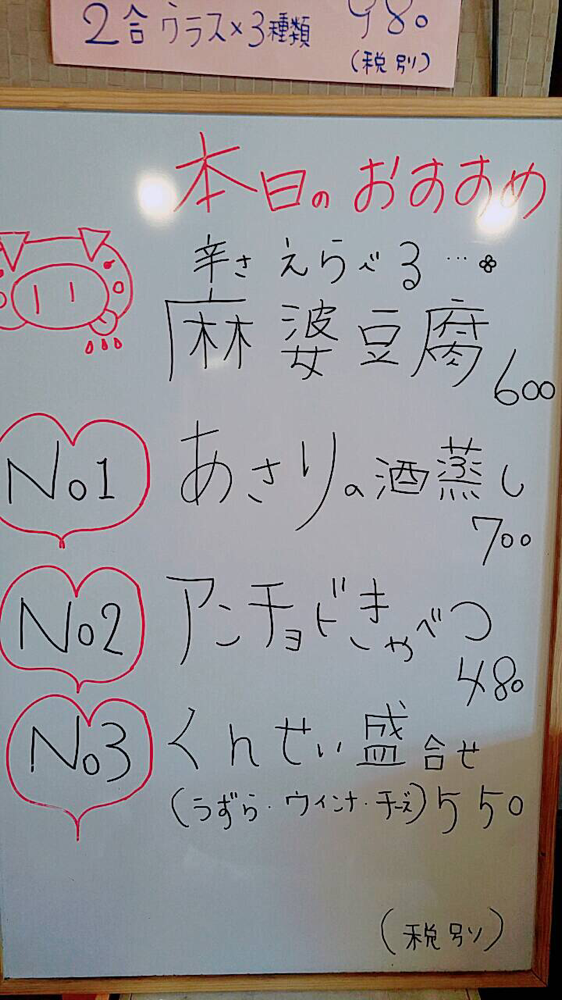 2合グラス×3種類 980
(税別)
本日のおすすめ
辛さえらべる…
麻婆豆腐
600
No1 あさりの酒蒸し
700
No2 アンチョビきゃべつ
480
No3 くんせい盛合せ
(うずら・ウインナ・チーズ) 550
(税別)